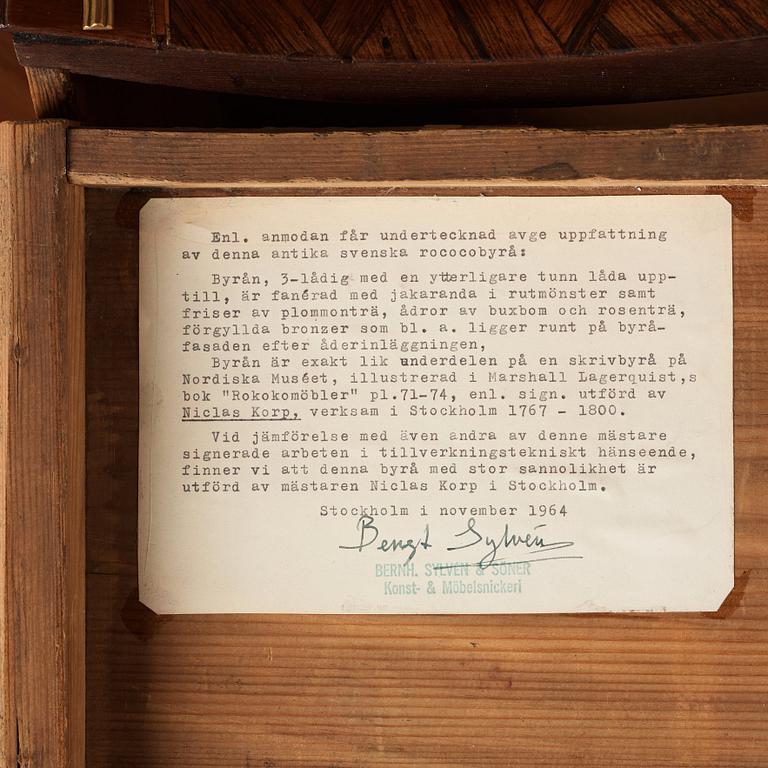 Enl. anmodan får undertecknad avge uppfattning
av denna antika svenska rococobyrå:
Byrån, 3-lådig med en ytterligare tunn låda upp-
till, är fanérad med jakaranda i rutmönster samt
friser av plommonträ, ådror av buxbom och rosenträ,
förgyllda bronzer som bl. a. ligger runt på byrå-
fasaden efter åderinläggningen,
Byrån är exakt lik underdelen på en skrivbyrå på
Nordiska Muséet, illustrerad i Marshall Lagerquist,s
bok "Rokokomöbler" pl.71-74, enl. sign. utförd av
Niclas Korp, verksam i Stockholm 1767 - 1800.
Vid jämförelse med även andra av denne mästare
signerade arbeten i tillverkningstekniskt hänseende,
finner vi att denna byrå med stor sannolikhet är
utförd av mästaren Niclas Korp i Stockholm.
Stockholm i november 1964
Bengt Sylvén
BERNH. SYLVÉN & SÖNER
Konst- & Möbelsnickeri